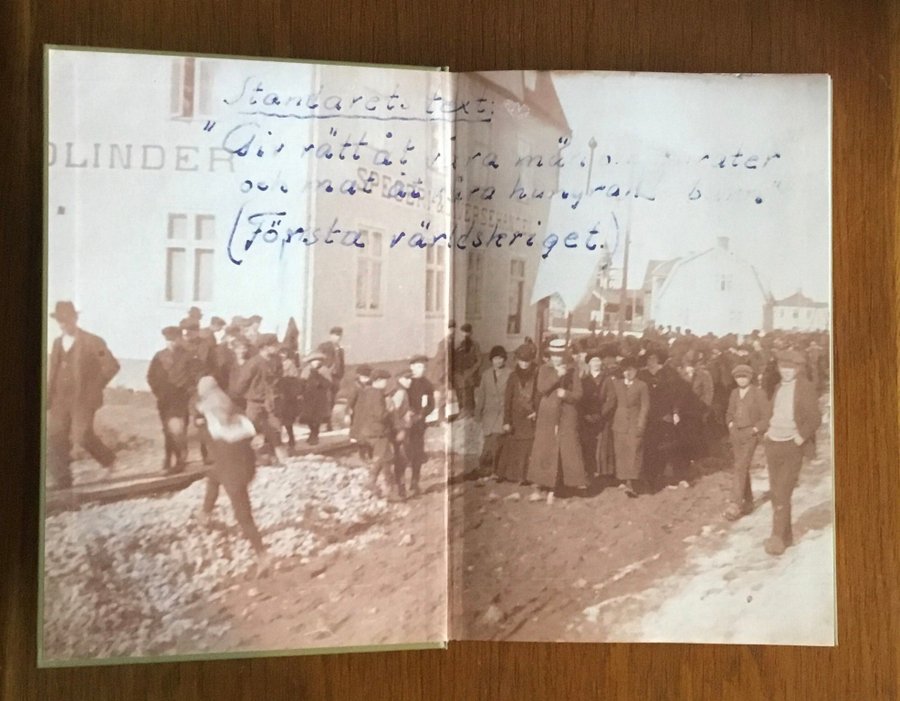 Standarets text:
"Giv rätt åt våra män
och mat åt våra hungrande barn."
(Första världskriget.)
OLINDER